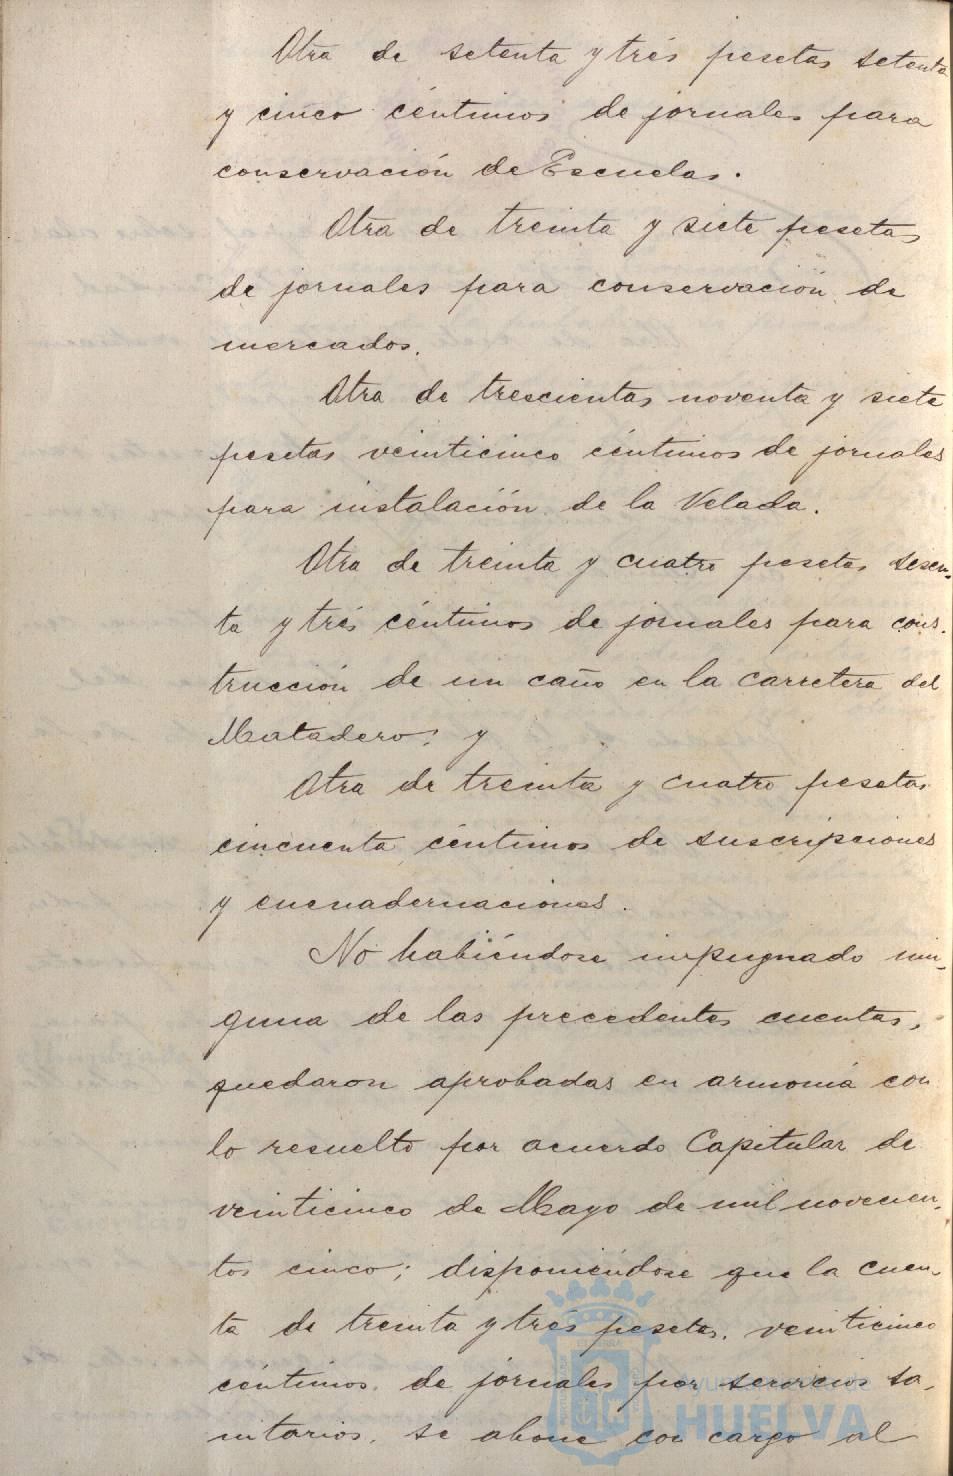 Otra de setenta y trés pesetas setenta
y cinco céntimos de jornales para
conservación de Escuelas.
Otra de treinta y siete pesetas
de jornales para conservación de
mercados.
Otra de trescientas noventa y siete
pesetas veinticinco céntimos de jornales
para instalación de la Velada.
Otra de treinta y cuatro pesetas sesen-
ta y trés céntimos de jornales para cons-
trucción de un caño en la carretera del
Matadero; y
Otra de treinta y cuatro pesetas
cincuenta céntimos de suscripciones
y encuadernaciones.
No habiéndose impugnado nin-
guna de las precedentes cuentas,
quedaron aprobadas en armonía con
lo resuelto por acuerdo Capitular de
veinticinco de Mayo de mil novecien-
tos cinco; disponiéndose que la cuen-
ta de treinta y trés pesetas veinticinco
céntimos de jornales por servicios sa-
nitarios, se abone con cargo al
Ayuntamiento de
HUELVA